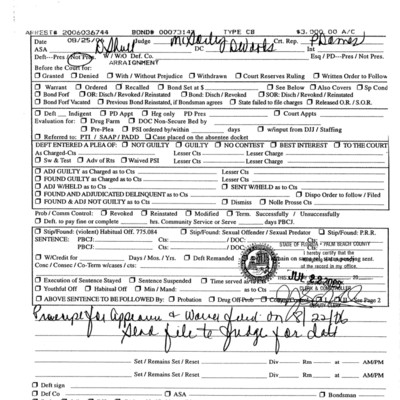 ARREST# 2006036744 BOND# 0007314 TYPE CB $3,000.00 A/C
Date 08/25/06 Judge McSorley Crt. Rep.
ASA DC D Works Int
Deft—Pres / Not Pres. W/WO Def. Co Esq / PD—Pres / Not Pres.
ARRAIGNMENT
Before the Court for:
☐ Granted ☐ Denied ☐ With / Without Prejudice ☐ Withdrawn ☐ Court Reserves Ruling ☐ Written Order to Follow
☐ Warrant ☐ Ordered ☐ Recalled ☐ Bond Set at $ ☐ See Below ☐ Also Covers ☐ Sp Cond
☐ Bond Forf ☐ OR: Disch / Revoked / Reinstated ☐ Bond: Disch / Revoked / Reinstated ☐ SOR: Disch / Revoked / Reinstated
☐ Bond Forf Vacated ☐ Previous Bond Reinstated, if Bondsman agrees ☐ State failed to file charges ☐ Released O.R. / S.O.R.
☐ Deft Indigent ☐ PD Appt ☐ Reg only PD Pres ☐ Court Appts
Evaluation for: ☐ Drug Farm ☐ DOC Non-Secure Bed by
☐ Pre-Plea ☐ PSI ordered by/within days ☐ w/input from DJJ / Staffing
☐ Referred to: PTI / SAAP / PADD ☐ Case placed on the absentee docket
DEFT ENTERED A PLEA OF: ☐ NOT GUILTY ☐ GUILTY ☐ NO CONTEST ☐ BEST INTEREST ☐ TO THE COURT
As Charged-Cts Lesser Cts Lesser Charge
☐ Sw & Test ☐ Adv of Rts ☐ Waived PSI Lesser Cts Lesser Charge
☐ ADJ GUILTY as Charged as to Cts Lesser Cts
☐ FOUND GUILTY as Charged as to Cts Lesser Cts
☐ ADJ W/HELD as to Cts ☐ SENT W/HELD as to Cts
☐ FOUND AND ADJUDICATED DELINQUENT as to Cts ☐ Dispo Order to follow / Filed
☐ FOUND & ADJ NOT GUILTY as to Cts ☐ Dismiss ☐ Nolle Prosse Cts
Prob / Comm Control: ☐ Revoked ☐ Reinstated ☐ Modified ☐ Term. Successfully / Unsuccessfully
☐ Deft. to pay fine or complete hrs. Community Service or Serve days PBCJ.
☐ Stip/Found: (violent) Habitual Off. 775.084 ☐ Stip/Found: Sexual Offender / Sexual Predator ☐ Stip/Found: P.R.R.
SENTENCE: PBCJ: Cts: / DOC: Cts:
PBCJ: Cts: / DOC:
STATE OF FLORIDA • PALM BEACH COUNTY
I hereby certify that the
of the record in my office.
☐ W/Credit for Days / Mos. / Yrs. ☐ Deft Remanded
Conc / Consec / Co-Term w/caus / cts:
☐ Execution of Sentence Stayed ☐ Sentence Suspended ☐ Time served as to Cts
☐ Youthful Off ☐ Habitual Off ☐ Min / Mand: as to Cts
CLERK & COMPTROLLER
☐ ABOVE SENTENCE TO BE FOLLOWED BY: ☐ Probation ☐ Drug Off-Prob See Page 2
DEPUTY CLERK
for Appearance & Waiver filed on 8/22/06
Send file to Judge for date
Set / Remains Set / Reset Div Rm at AM/PM
Set / Remains Set / Reset Div Rm at AM/PM
☐ Deft sign
☐ Def Co ☐ ASA ☐ Bondsman